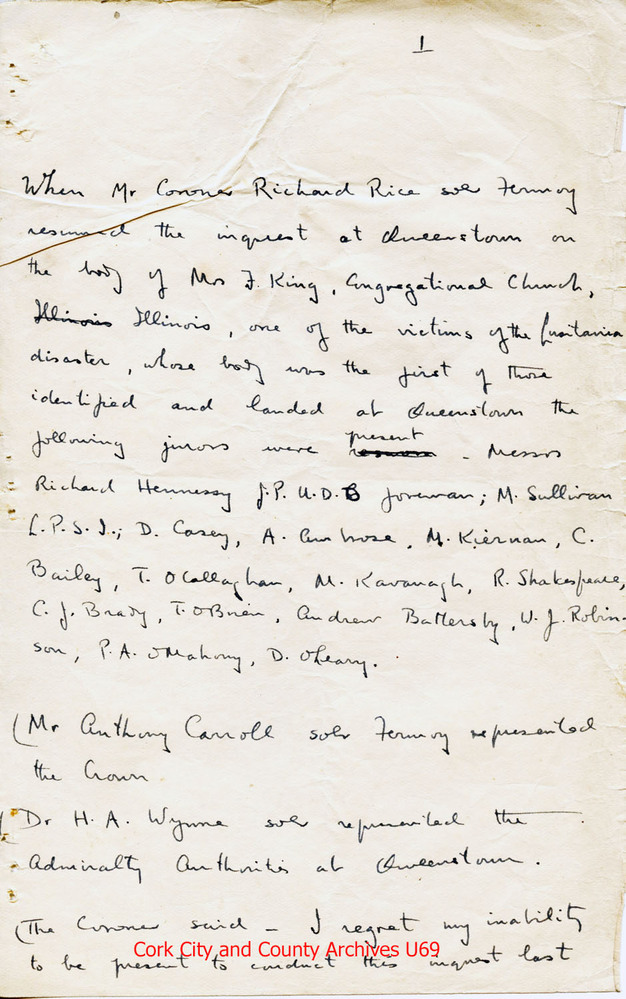 1
When Mr Coroner Richard Rice solr Fermoy
resumed the inquest at Queenstown on
the body of Mrs F. King, Congregational Church,
Illinois Illinois, one of the victims of the Lusitania
disaster, whose body was the first of those
identified and landed at Queenstown the
following jurors were present - Messrs
Richard Hennessy J.P. U.D.C foreman; M. Sullivan
L.P.S.I.; D. Casey, A. Ambrose, M. Kiernan, C.
Bailey, T. O'Callaghan, M. Kavanagh, R. Shakespeare,
C. J. Brady, T. O'Brien, Andrew Battersby, W. J. Robin-
son, P. A. O'Mahony, D. O'Leary.
(Mr Anthony Carroll solr Fermoy represented
the Crown
(Dr H. A. Wynne solr represented the
Admiralty Authorities at Queenstown.
(The Coroner said - I regret my inability
to be present to conduct this inquest last
Cork City and County Archives U69